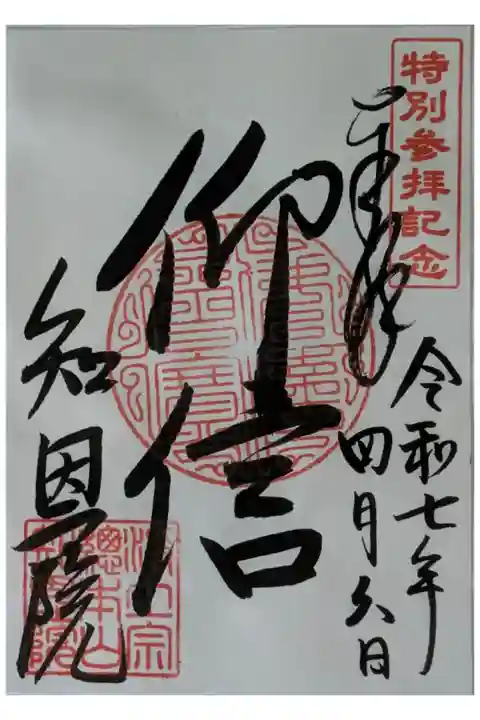 特別参拝記念
奉拝
令和七年
四月六日
仰信
知恩院
浄土宗
總本山
知恩院